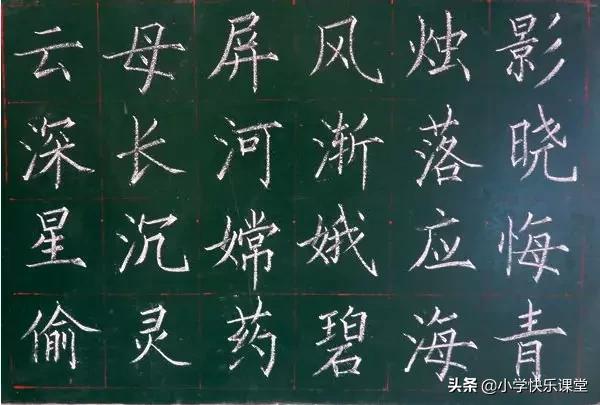 云母屏风烛影
深长河渐落晓
星沉嫦娥应悔
偷灵药碧海青
头条 @小学快乐课堂